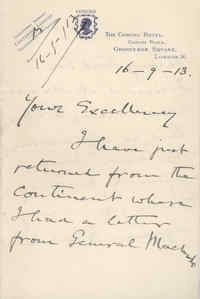 THE COBURG HOTEL,
GROSVENOR SQUARE,
LONDON. W.
16-9-13
16-9-13.
Your Excellency
I have just
returned from the
Continent where
I had a letter
from General